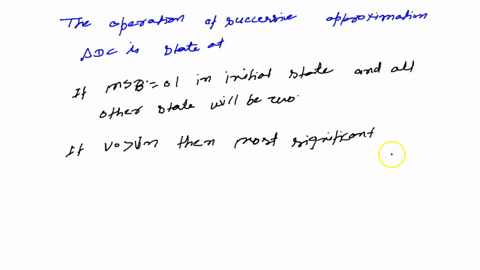 The operation of successive approximation
ADC is state at
If MSB = 01 in initial state and all
other state will be zero.
If Vo > Vn then most significant